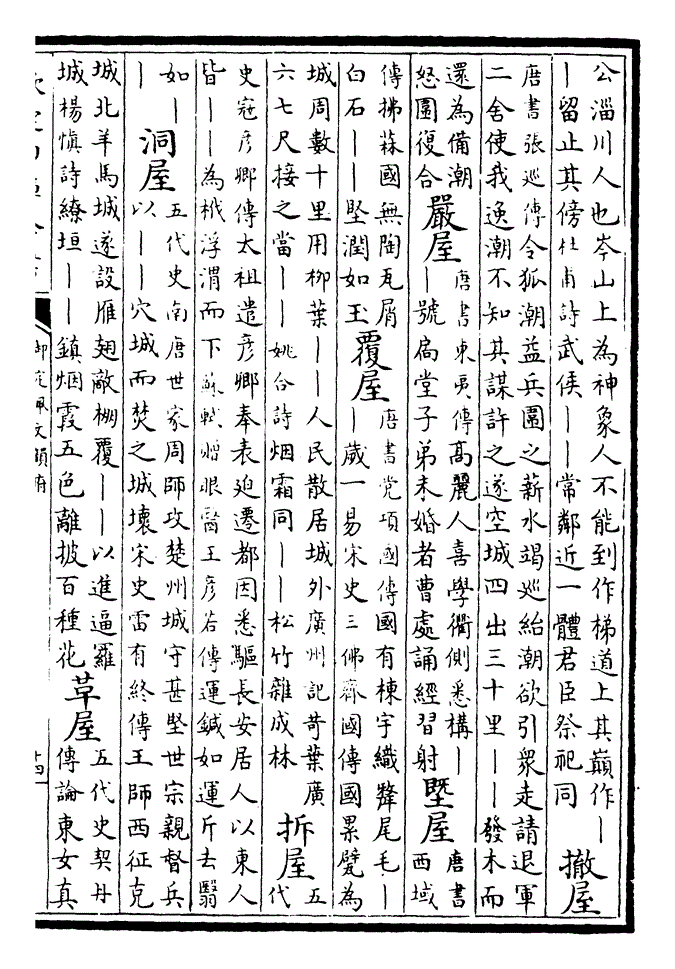 公淄川人也岑山上為神象人不能到作梯道上其巔作丨
丨留止其傍杜甫詩武侯丨丨常鄰近一體君臣祭祀同
撤屋
唐書張巡傳令狐潮益兵圍之薪水竭巡紿潮欲引衆走請退軍
二舍使我逸潮不知其謀許之遂空城四出三十里丨丨發木而
還為備潮
怒圍復合
嚴屋
唐書東夷傳高麗人喜學衢側悉構丨
丨號扃堂子弟未婚者曹處誦經習射
塈屋
唐書
西域
傳拂菻國無陶瓦屑
白石丨丨堅潤如玉
覆屋
唐書党項國傳國有棟宇織犛尾毛丨
丨歲一易宋史三佛齊國傳國累甓為
城周數十里用柳葉丨丨人民散居城外廣州記苛葉廣
六七尺接之當丨丨姚合詩烟霜同丨丨松竹雜成林
拆屋
五
代
史寇彦卿傳太祖遣彦卿奉表廹遷都因悉驅長安居人以東人
皆丨丨為栰浮渭而下蘇軾贈眼醫王彦若傳運鍼如運斤去翳
如丨
丨
洞屋
五代史南唐世家周師攻楚州城守甚堅世宗親督兵
以丨丨穴城而焚之城壞宋史雷有終傳王師西征克
城北羊馬城遂設雁翅敵棚覆丨丨以進逼羅
城楊慎詩繚垣丨丨鎮烟霞五色離披百種花
草屋
五代史契丹
傳論東女真
御定佩文韻府
十四